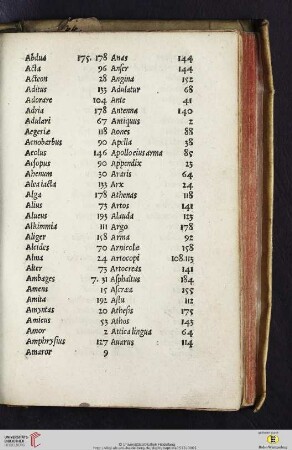 Abdua 175. 178
Acta 96
Acteon 28
Aditus 133
Adorare 104
Adria 178
Adulari 67
Aegeriæ 118
Aenobarbus 90
Aeolus 146
Aesopus 90
Ahenum 30
Alea iacta 133
Alga 178
Alius 73
Alueus 193
Alkimmia 111
Aliger 158
Alcides 70
Alma 24
Alter 73
Ambages 7. 31
Amens 15
Amita 192
Amyntas 20
Amicus 53
Amor 2
Amphrysius 127
Amaror 9
Anas 144
Anser 144
Angina 152
Adulatur 68
Ante 41
Antenna 140
Antiquus 2
Aones 88
Apella 38
Apollo eius arma 85
Appendix 23
Araris 64
Arx 24
Athenas 118
Artos 141
Alauda 123
Argo 178
Arma 92
Arnicolæ 158
Artocopi 108.113
Artocreas 141
Asphaltus 184
Ascræa 155
Astu 112
Athesis 175
Athos 143
Attica lingua 64
Auarus 114